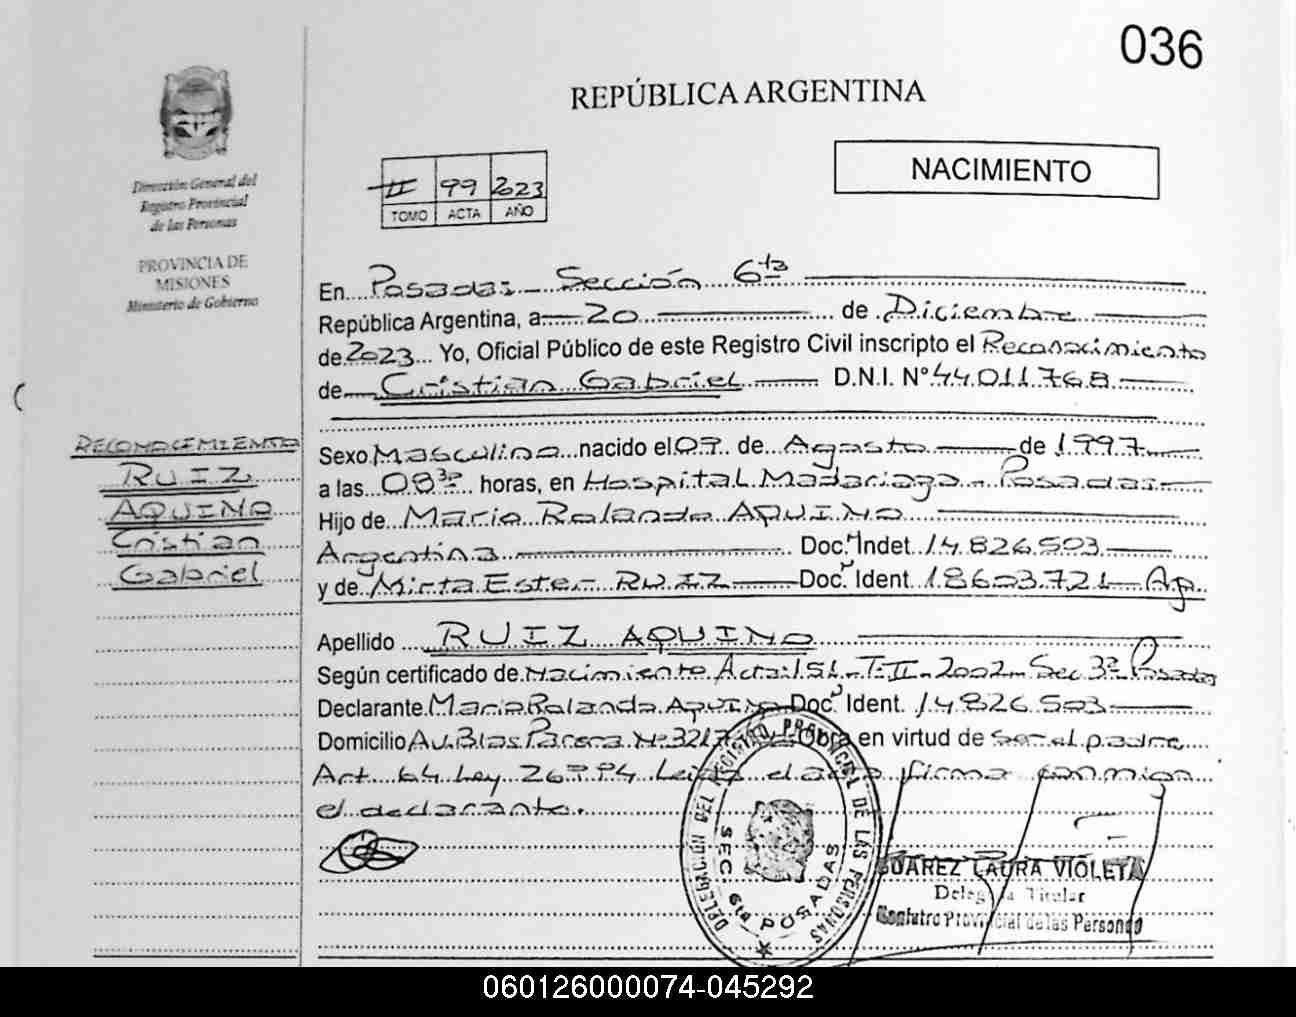 036
REPÚBLICA ARGENTINA
NACIMIENTO
II 99 2023
TOMO ACTA AÑO
Dirección General del
Registro Provincial
de las Personas
PROVINCIA DE
MISIONES
Ministerio de Gobierno
En Posadas - Sección 6ta
República Argentina, a 20 de Diciembre
de 2023 Yo, Oficial Público de este Registro Civil inscripto el Reconocimiento
de Cristian Gabriel D.N.I. N° 44.011.768
RECONOCIMIENTO
RUIZ
AQUINO
Cristian
Gabriel
Sexo Masculino nacido el 09 de Agosto de 1.997
a las 08 30 horas, en Hospital Madariaga - Posadas
Hijo de Mario Rolando AQUINO
Argentina Doc. Indet. 14.826.503
y de Mirta Ester RUIZ Doc. Ident. 18.603.721
Apellido RUIZ AQUINO
Según certificado de Nacimiento Acta 151 - T-II - 2002 - Sec 3a Posadas
Declarante Mario Rolando AQUINO Doc. Ident. 14.826.503
Domicilio Av. Blas Parera N° 3217 Obra en virtud de ser el padre
Art. 64 Ley 26.994 Leída el acta firma conmigo
el declarante.
DELEGACIÓN DEL REGISTRO PROVINCIAL DE LAS PERSONAS
SEC 6ta POSADAS
SUAREZ LAURA VIOLETA
Delegada Titular
Registro Provincial de las Personas
060126000074-045292